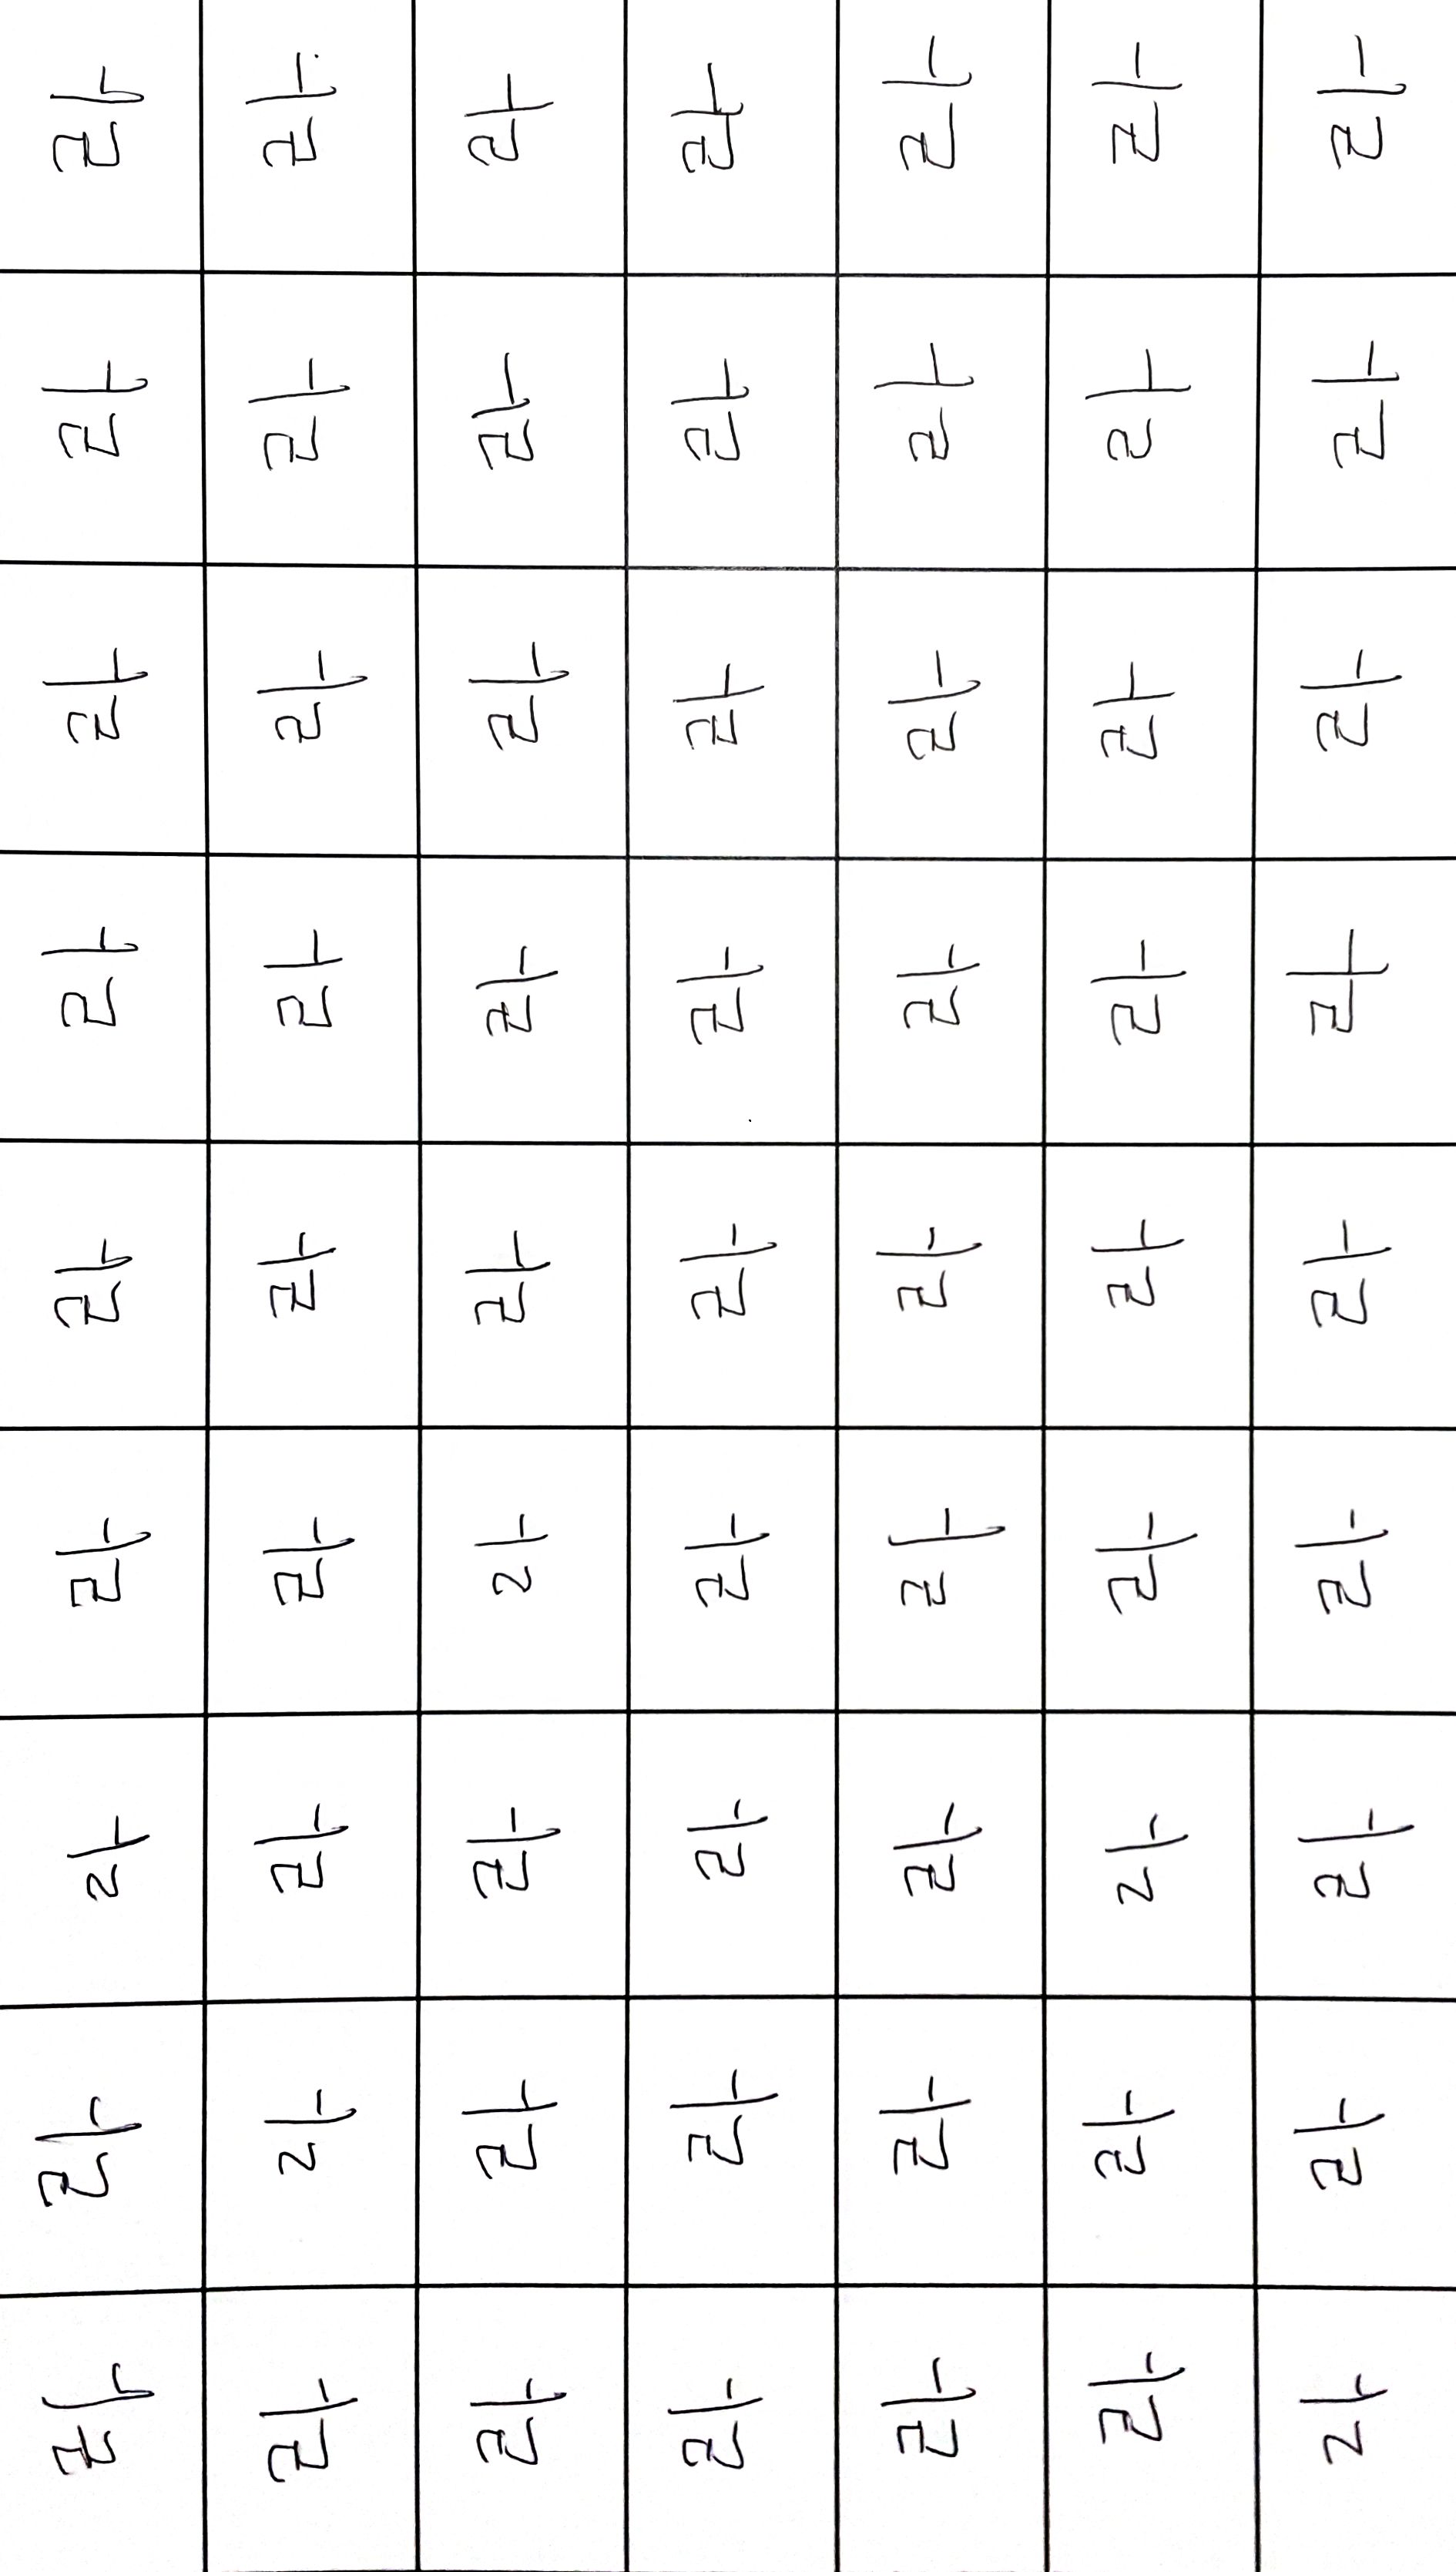 라 라 라 라 라 라 라 라 라
라 라 라 라 라 라 라 라 라
라 라 라 라 라 라 라 라 라
라 라 라 라 라 라 라 라 라
라 라 라 라 라 라 라 라 라
라 라 라 라 라 라 라 라 라
라 라 라 라 라 라 라 라 라